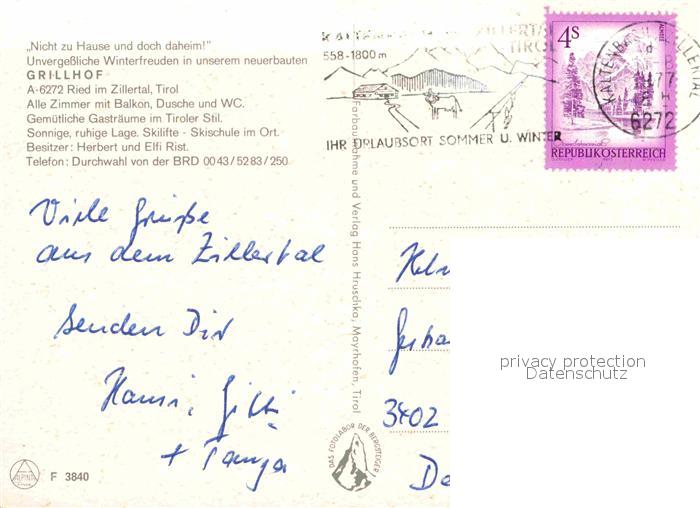 „Nicht zu Hause und doch daheim!"
Unvergeßliche Winterfreuden in unserem neuerbauten
GRILLHOF
A-6272 Ried im Zillertal, Tirol
Alle Zimmer mit Balkon, Dusche und WC.
Gemütliche Gasträume im Tiroler Stil.
Sonnige, ruhige Lage. Skilifte - Skischule im Ort.
Besitzer: Herbert und Elfi Rist.
Telefon: Durchwahl von der BRD 00 43 / 52 83 / 250
Viele Grüße
aus dem Zillertal
senden Dir
Hansi, Gitti
+ Tanja
ALPINA
F 3840
Farbaufnahme und Verlag Hans Hruschka, Mayrhofen, Tirol
DAS FOTOLABOR DER BERGSTEIGER
ZILLERTAL
TIROL
558-1800 m
IHR URLAUBSORT SOMMER U. WINTER
4s
ALMSEE
REPUBLIK ÖSTERREICH
KALTENBACH ZILLERTAL
77
6272
3402
privacy protection
Datenschutz